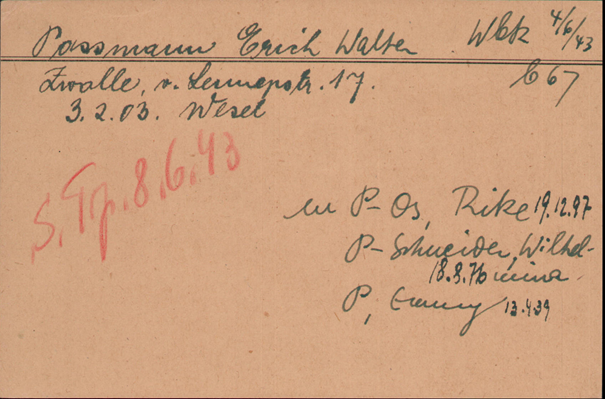 Passmann Erich Walter Wbk 4/6/43
Zwolle, v. Lennepstr. 17. C 67
3.2.03. Wesel
S. Tp. 8.6.43
m P-Os, Rike 19.12.97
P-Schneider, Wilhel-
18.8.76 mina
P, Emmy 13.4.39